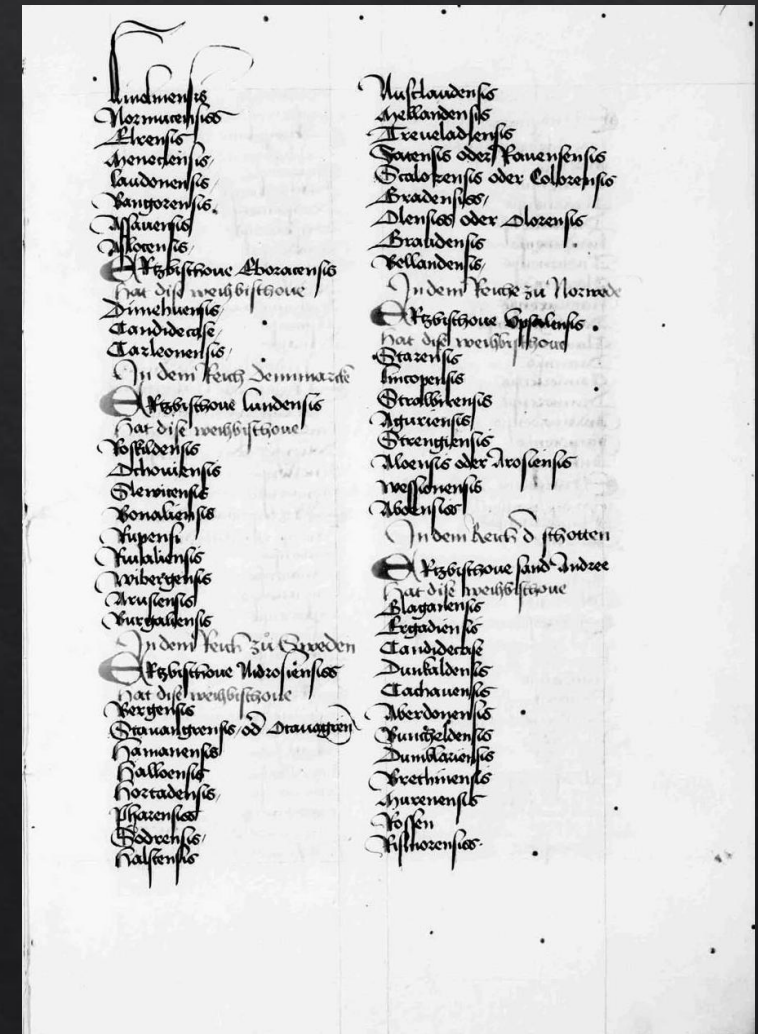 Lincolniensis
Normucensiss
Elrensis
Menecensis
laudonensis
Bangorensis
Assauensis
Assocensis
ERtzbischoue Eboracensis
hat dise weihbischoue
Dimelmensis
Candidecase
Carleonensis
In dem Reich Dennmarckt
ERtzbischoue lundensis
hat dise weihbischoue
Roskildensis
Othoniensis
Slewicensis
Bonaliensis
Rupensi
Riualiensis
Wibergensis
Arusiensis
Burgaliensis
In dem Reich zů Sweden
ERtzbischoue Nidrosiensiss
hat dise weihbischoue
Bergensis
Stauangrensis od Octauagren
Hamanensis
Halloensis
Hortadensis
Pharensiss
Sodrensis
Halstensis
Ausclandensis
Mellandensis
Treueladensis
Facensis oder Rauensensis
Scalorensis oder Colorensis
Gradensiss
Olensiss oder Olorensis
Graudensis
Bellandensis
In dem Reiche zů Norwede
ERtzbischoue Vpsalensis
hat dise weihbischoue
Starensis
lincopensis
Strolbicensis
Aguriensis
Strengiensis
Aloensis oder Arosiensis
Wessionensis
Aboensiss
In dem Reich d schotten
ERtzbischoue sand Andree
hat dise weihbischoue
Glaganensis
Ergadiensis
Candidecase
Dunkaldensis
Cachanensis
Aberdonensis
Buncheldensis
Dumblariensis
Brethinensis
Murenensis
Rossen
Rismorensiss